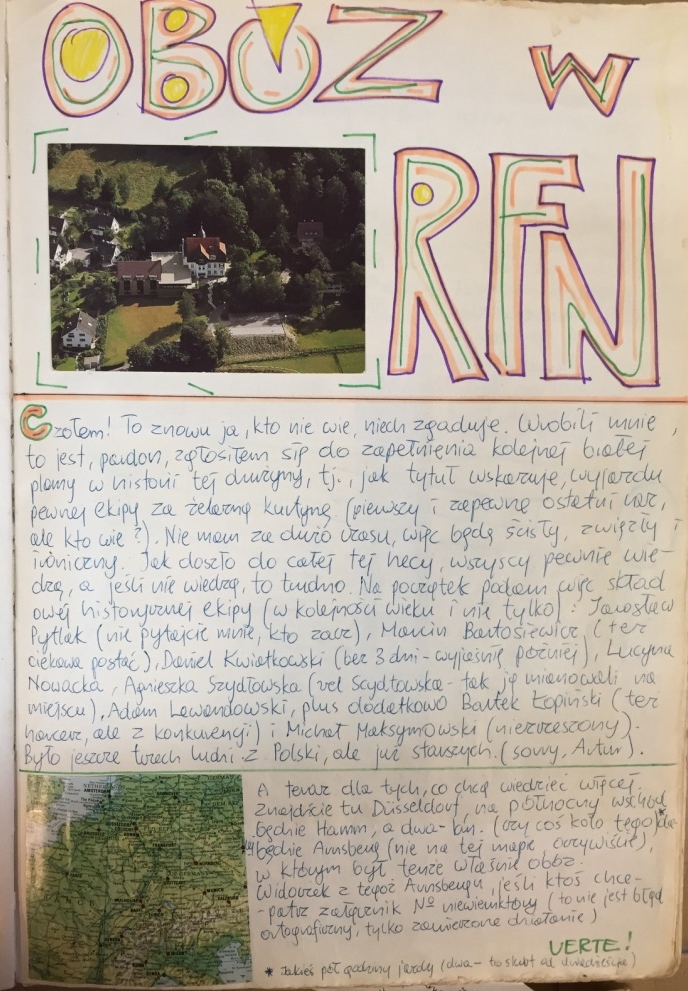 OBÓZ W
RFN
Czołem! To znowu ja, kto nie wie, niech zgaduje. Wrobili mnie,
to jest, pardon, zgłosiłem się do zapełnienia kolejnej białej
plamy w historii tej drużyny, tj., jak tytuł wskazuje, wyjazdu
pewnej ekipy za żelazną kurtynę (pierwszy i zapewne ostatni raz,
ale kto wie?). Nie mam za dużo czasu, więc będę ścisły, zwięzły i
ironiczny. Jak doszło do całej tej hecy, wszyscy pewnie wie-
dzą, a jeśli nie wiedzą, to trudno. Na początek podam więc skład
owej historycznej ekipy (w kolejności wieku i nie tylko): Jarosław
Pytlak (nie pytajcie mnie, kto zacz), Marcin Bartosiewicz (też
ciekawa postać), Daniel Kwiatkowski (bez 3 dni - wyjaśnię później), Lucyna
Nowacka, Agnieszka Szydłowska (vel Scydtowska - tak ją mianowali na
miejscu), Adam Lewandowski, plus dodatkowo Bartek Łopiński (też
harcerz, ale z konkurencji) i Michał Maksymowski (niezrzeszony).
Było jeszcze trzech ludzi z Polski, ale już starszych. (sorry, Artur).
A teraz dla tych, co chcą wiedzieć więcej.
Znajdźcie tu Düsseldorf, na północny wschód
będzie Hamm, a dwa - km. (czy coś koło tego)*
będzie Arnsberg (nie na tej mapie, oczywiście),
w którym był tenże właśnie obóz.
Widoczek z tegoż Arnsbergu, jeśli ktoś chce-
- patrz załącznik Nº niewienktóry (to nie jest błąd
ortograficzny, tylko zamierzone działanie)
VERTE!
* Jakieś pół godziny jazdy (dwa - to skrót od dwadzieścia)